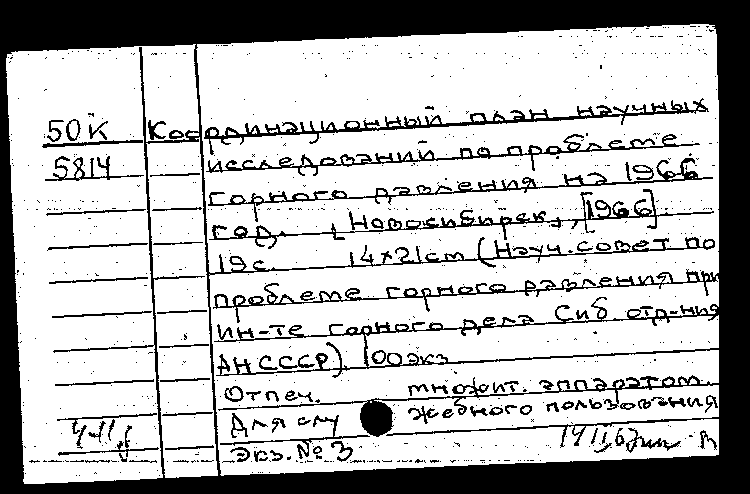 50К Координационный план научных
5814 исследований по проблеме
горного давления на 1966
год. [Новосибирск], [1966].
19с. 14×21cm (Науч. совет по
проблеме горного давления при
ин-те горного дела Сиб. отд-ния
АН СССР). 100экз
Отпеч. множит. аппаратом.
Для служебного пользования
Экз. № 3